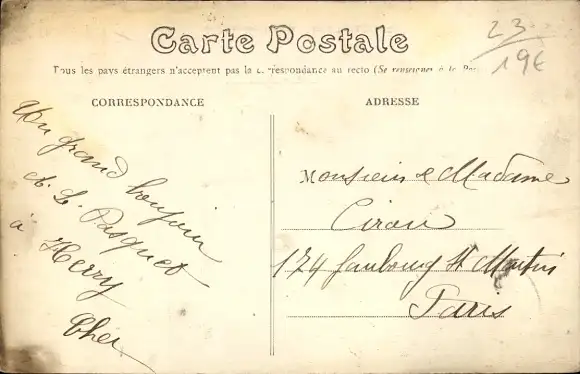 Carte Postale
23
19€
Tous les pays étrangers n'acceptent pas la correspondance au recto (Se renseigner à la Pos
CORRESPONDANCE
ADRESSE
Un grand bonjour
L. Pasquet
à Herry
Cher
Monsieur & Madame
Cirou
174 faubourg St Martin
Paris